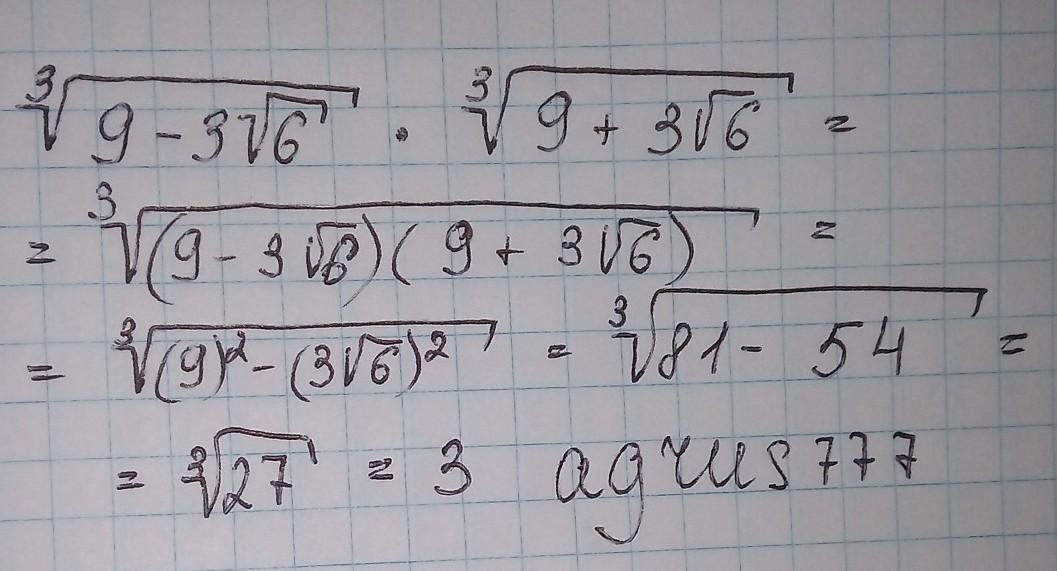 ∛(9 - 3√6) · ∛(9 + 3√6) =
= ∛((9 - 3√6)(9 + 3√6)) =
= ∛((9)² - (3√6)²) = ∛(81 - 54) =
= ∛27 = 3 agrus777